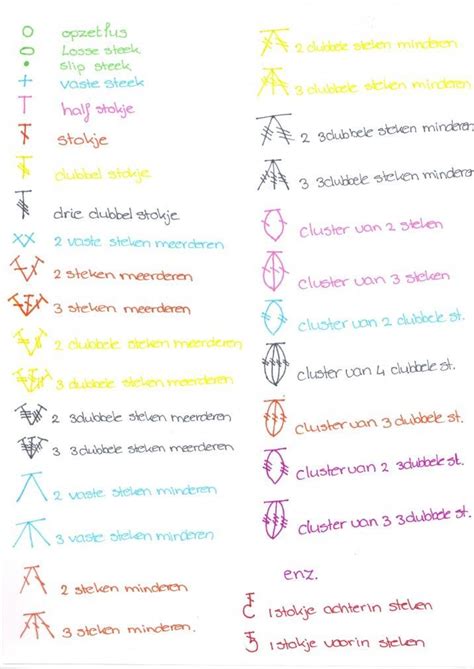 opzetlus
Losse steek
slip steek
vaste steek
half stokje
stokje
dubbel stokje
drie dubbel stokje
2 vaste steken meerderen
2 steken meerderen
3 steken meerderen
2 dubbele steken meerderen
3 dubbele steken meerderen
2 3dubbele steken meerderen
3 3dubbele steken meerderen
2 vaste steken minderen
3 vaste steken minderen
2 steken minderen
3 steken minderen.
2 dubbele steken minderen
3 dubbele steken minderen
2 3dubbele steken minderen.
3 3dubbele steken minderen.
cluster van 2 steken
cluster van 3 steken
cluster van 2 dubbele st.
cluster van 4 dubbele st.
cluster van 3 dubbele st.
cluster van 2 3dubbele st.
cluster van 3 3dubbele st.
enz.
1 stokje achterin steken
1 stokje voorin steken